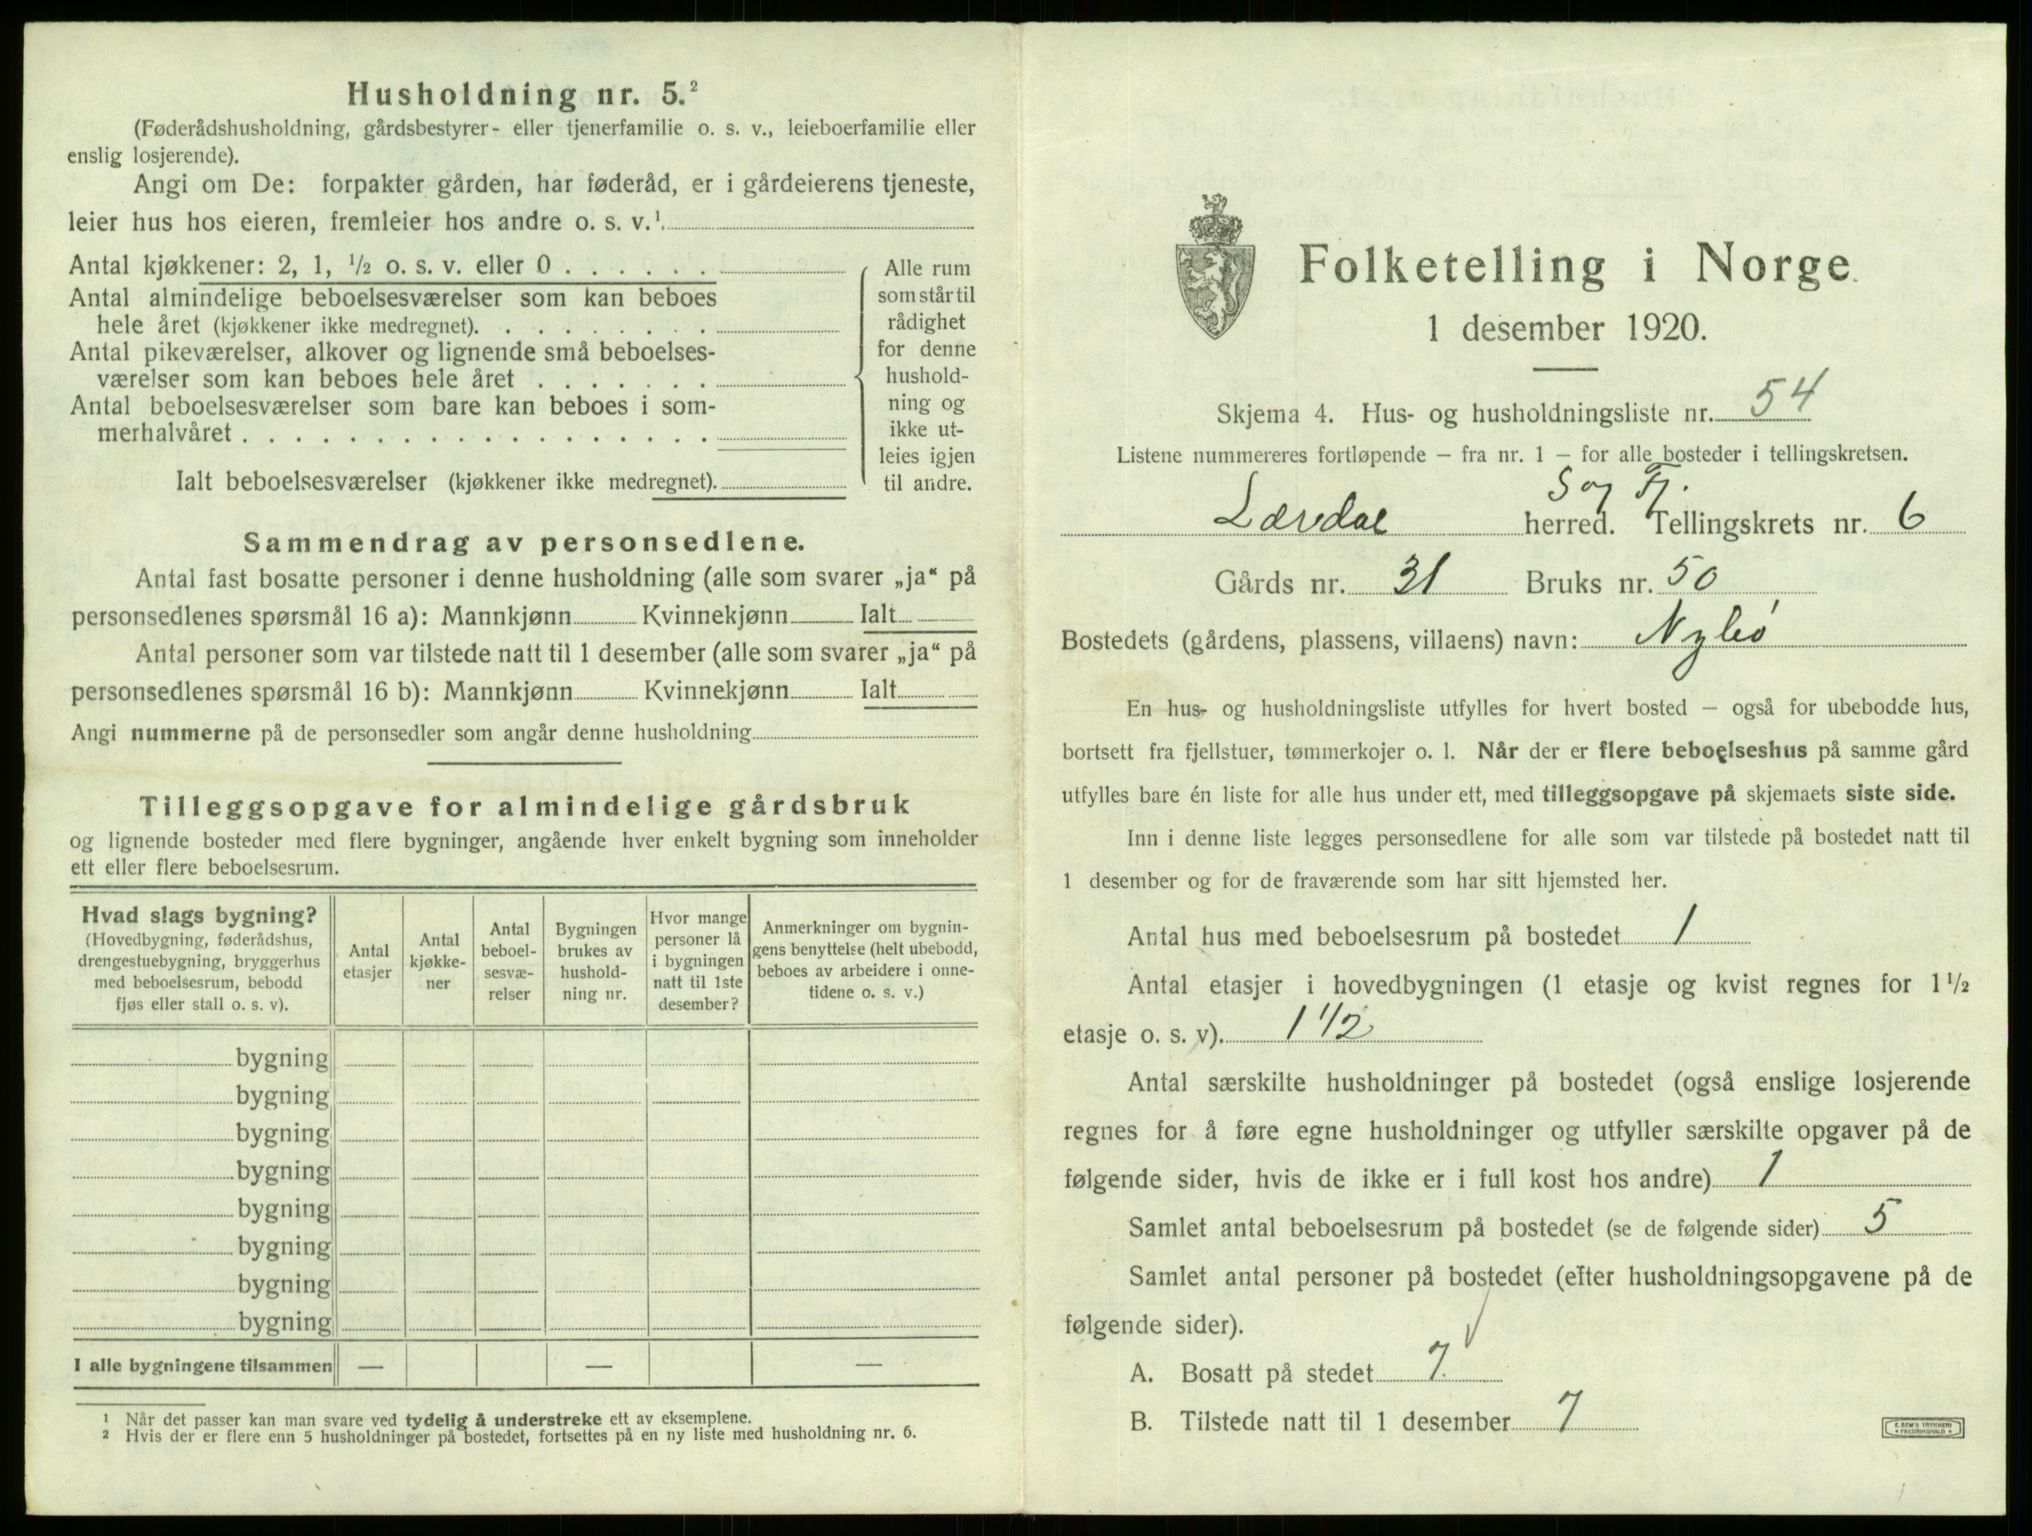 Husholdning nr. 5.²
(Føderådshusholdning, gårdsbestyrer- eller tjenerfamilie o. s. v., leieboerfamilie eller
enslig losjerende).
Angi om De: forpakter gården, har føderåd, er i gårdeierens tjeneste,
leier hus hos eieren, fremleier hos andre o. s. v.¹
Antal kjøkkener: 2, 1, ½ o. s. v. eller 0 . . . . . .
Antal almindelige beboelsesværelser som kan beboes
hele året (kjøkkener ikke medregnet). . . . . . . . .
Antal pikeværelser, alkover og lignende små beboelses-
værelser som kan beboes hele året . . . . . . .
Antal beboelsesværelser som bare kan beboes i som-
merhalvåret . . . . . . . . . . . . . . . . . .
Ialt beboelsesværelser (kjøkkener ikke medregnet).
Alle rum
som står til
rådighet
for denne
hushold-
ning og
ikke ut-
leies igjen
til andre.
Sammendrag av personsedlene.
Antal fast bosatte personer i denne husholdning (alle som svarer „ja“ på
personsedlenes spørsmål 16 a): Mannkjønn Kvinnekjønn Ialt
Antal personer som var tilstede natt til 1 desember (alle som svarer „ja“ på
personsedlenes spørsmål 16 b): Mannkjønn Kvinnekjønn Ialt
Angi nummerne på de personsedler som angår denne husholdning
Tilleggsopgave for almindelige gårdsbruk
og lignende bosteder med flere bygninger, angående hver enkelt bygning som inneholder
ett eller flere beboelsesrum.
Hvad slags bygning?
(Hovedbygning, føderådshus,
drengestuebygning, bryggerhus
med beboelsesrum, bebodd
fjøs eller stall o. s. v).
Antal
etasjer
Antal
kjøkke-
ner
Antal
beboel-
sesvæ-
relser
Bygningen
brukes av
hushold-
ning nr.
Hvor mange
personer lå
i bygningen
natt til 1ste
desember?
Anmerkninger om bygnin-
gens benyttelse (helt ubebodd,
beboes av arbeidere i onne-
tidene o. s. v.)
bygning
bygning
bygning
bygning
bygning
bygning
bygning
bygning
I alle bygningene tilsammen — — —
1 Når det passer kan man svare ved tydelig å understreke ett av eksemplene.
2 Hvis der er flere enn 5 husholdninger på bostedet, fortsettes på en ny liste med husholdning nr. 6.
Folketelling i Norge
1 desember 1920.
Skjema 4. Hus- og husholdningsliste nr. 54
Listene nummereres fortløpende — fra nr. 1 — for alle bosteder i tellingskretsen.
S og Fj.
Lærdal herred. Tellingskrets nr. 6
Gårds nr. 31 Bruks nr. 50
Bostedets (gårdens, plassens, villaens) navn: Nybó
En hus- og husholdningsliste utfylles for hvert bosted — også for ubebodde hus,
bortsett fra fjellstuer, tømmerkojer o. l. Når der er flere beboelseshus på samme gård
utfylles bare én liste for alle hus under ett, med tilleggsopgave på skjemaets siste side.
Inn i denne liste legges personsedlene for alle som var tilstede på bostedet natt til
1 desember og for de fraværende som har sitt hjemsted her.
Antal hus med beboelsesrum på bostedet 1
Antal etasjer i hovedbygningen (1 etasje og kvist regnes for 1 ½
etasje o. s. v). 1 1/2
Antal særskilte husholdninger på bostedet (også enslige losjerende
regnes for å føre egne husholdninger og utfyller særskilte opgaver på de
følgende sider, hvis de ikke er i full kost hos andre) 1
Samlet antal beboelsesrum på bostedet (se de følgende sider) 5
Samlet antal personer på bostedet (efter husholdningsopgavene på de
følgende sider).
A. Bosatt på stedet 7.
B. Tilstede natt til 1 desember 7
E. SEM'S TRYKKERI
FREDRIKSHALD